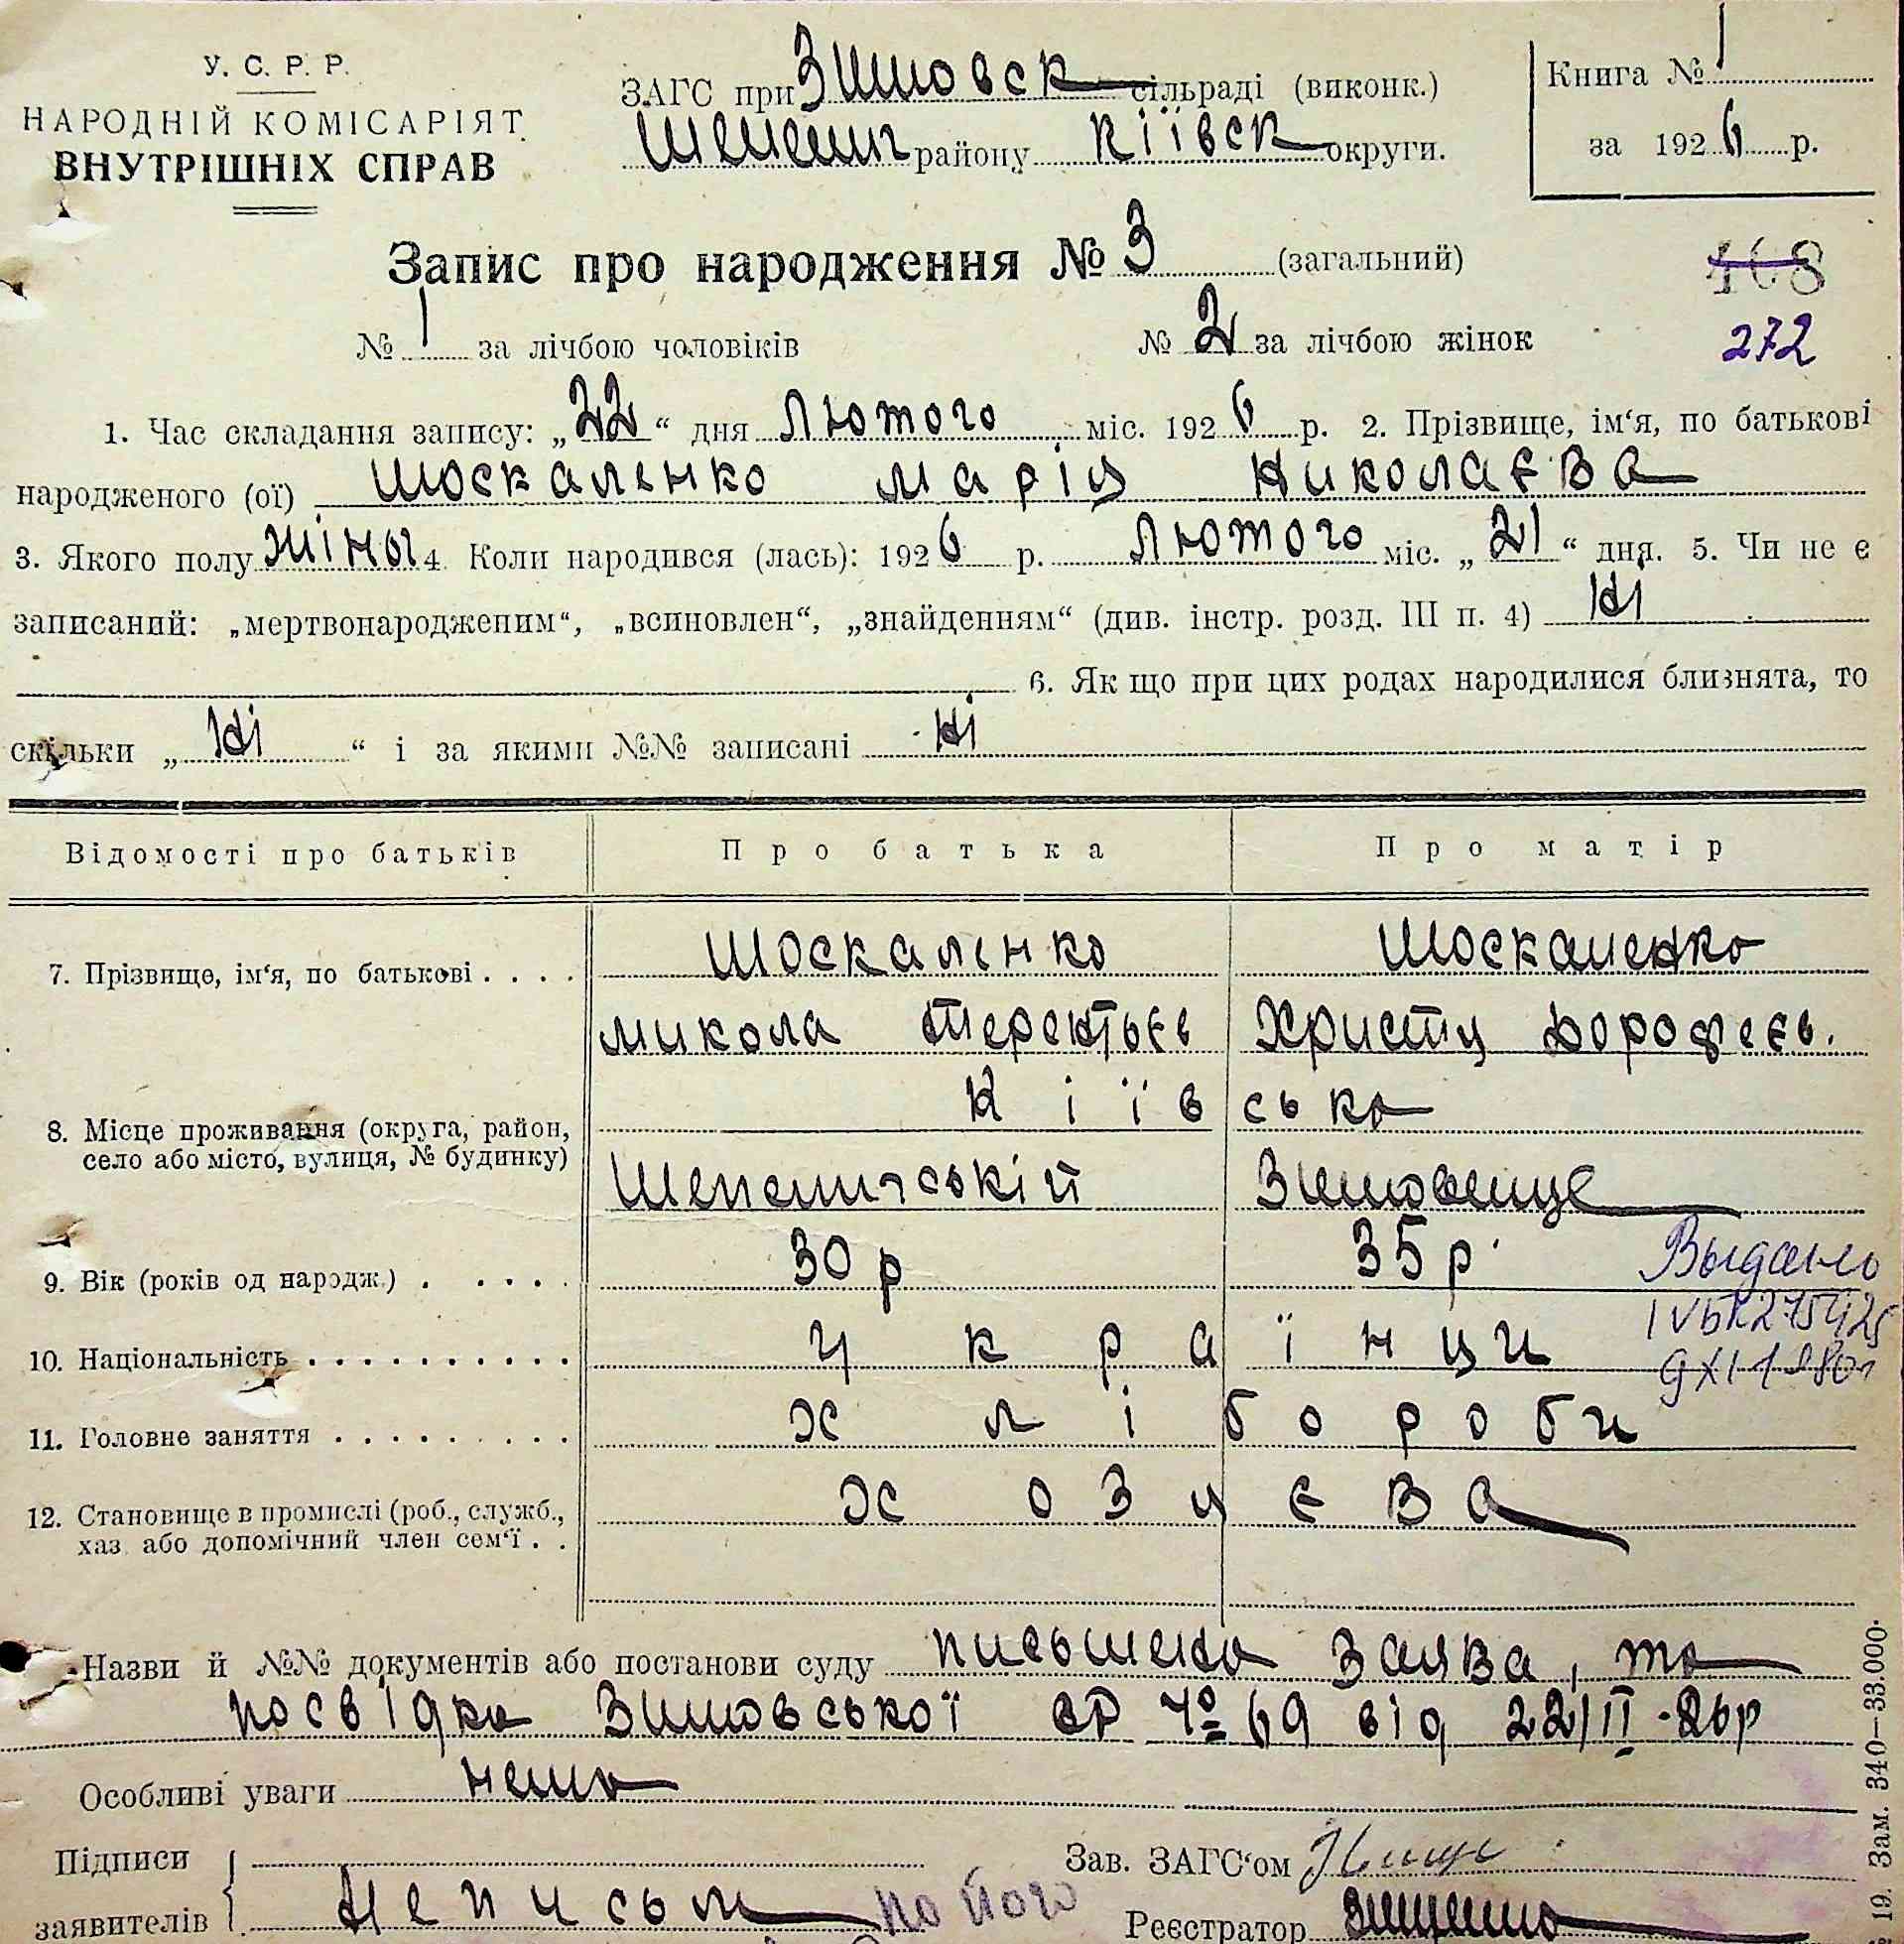 У. С. Р. Р.
НАРОДНІЙ КОМІСАРІЯТ
ВНУТРІШНІХ СПРАВ
ЗАГС при Зимовск сільраді (виконк.)
Шепелич району Кіївск округи.
Книга № 1
за 1926 р.
Запис про народження № 3 (загальний)
168
№ 1 за лічбою чоловіків № 2 за лічбою жінок
272
1. Час складання запису: „22“ дня Лютого міс. 1926 р. 2. Прізвище, ім‘я, по батькові
народженого (ої) Москаленко Марія Николаєва
3. Якого полу жіноч 4. Коли народився (лась): 1926 р. Лютого міс. „21“ дня. 5. Чи не є
записаний: „мертвонародженим“, „всиновлен“, „знайденням“ (див. інстр. розд. III п. 4) ні
6. Як що при цих родах народилися близнята, то
скільки „ ні “ і за якими №№ записані ні
Відомості про батьків Про батька Про матір
7. Прізвище, ім‘я, по батькові . . . . Москаленко Москаленко
Микола Терентьєв Христя Дорофеєв.
8. Місце проживання (округа, район, Кіївська
село або місто, вулиця, № будинку) Шепеличській Зимовище
9. Вік (років од народж.) . . . . . 30 р 35 р.
Выдано
10. Національність . . . . . . . . . . . українци
11. Головне заняття . . . . . . . . . хлібороби
12. Становище в промислі (роб., служб., хозяєва
хаз. або допомічний член сем‘ї . .
Назви й №№ документів або постанови суду письмена заява, та
посвідка Зимовської СР № 69 від 22/II-26р
Особливі уваги нема
Підписи
заявителів Неписьм по його
Зав. ЗАГС‘ом
Реєстратор
19. Зам. 340—33.000.